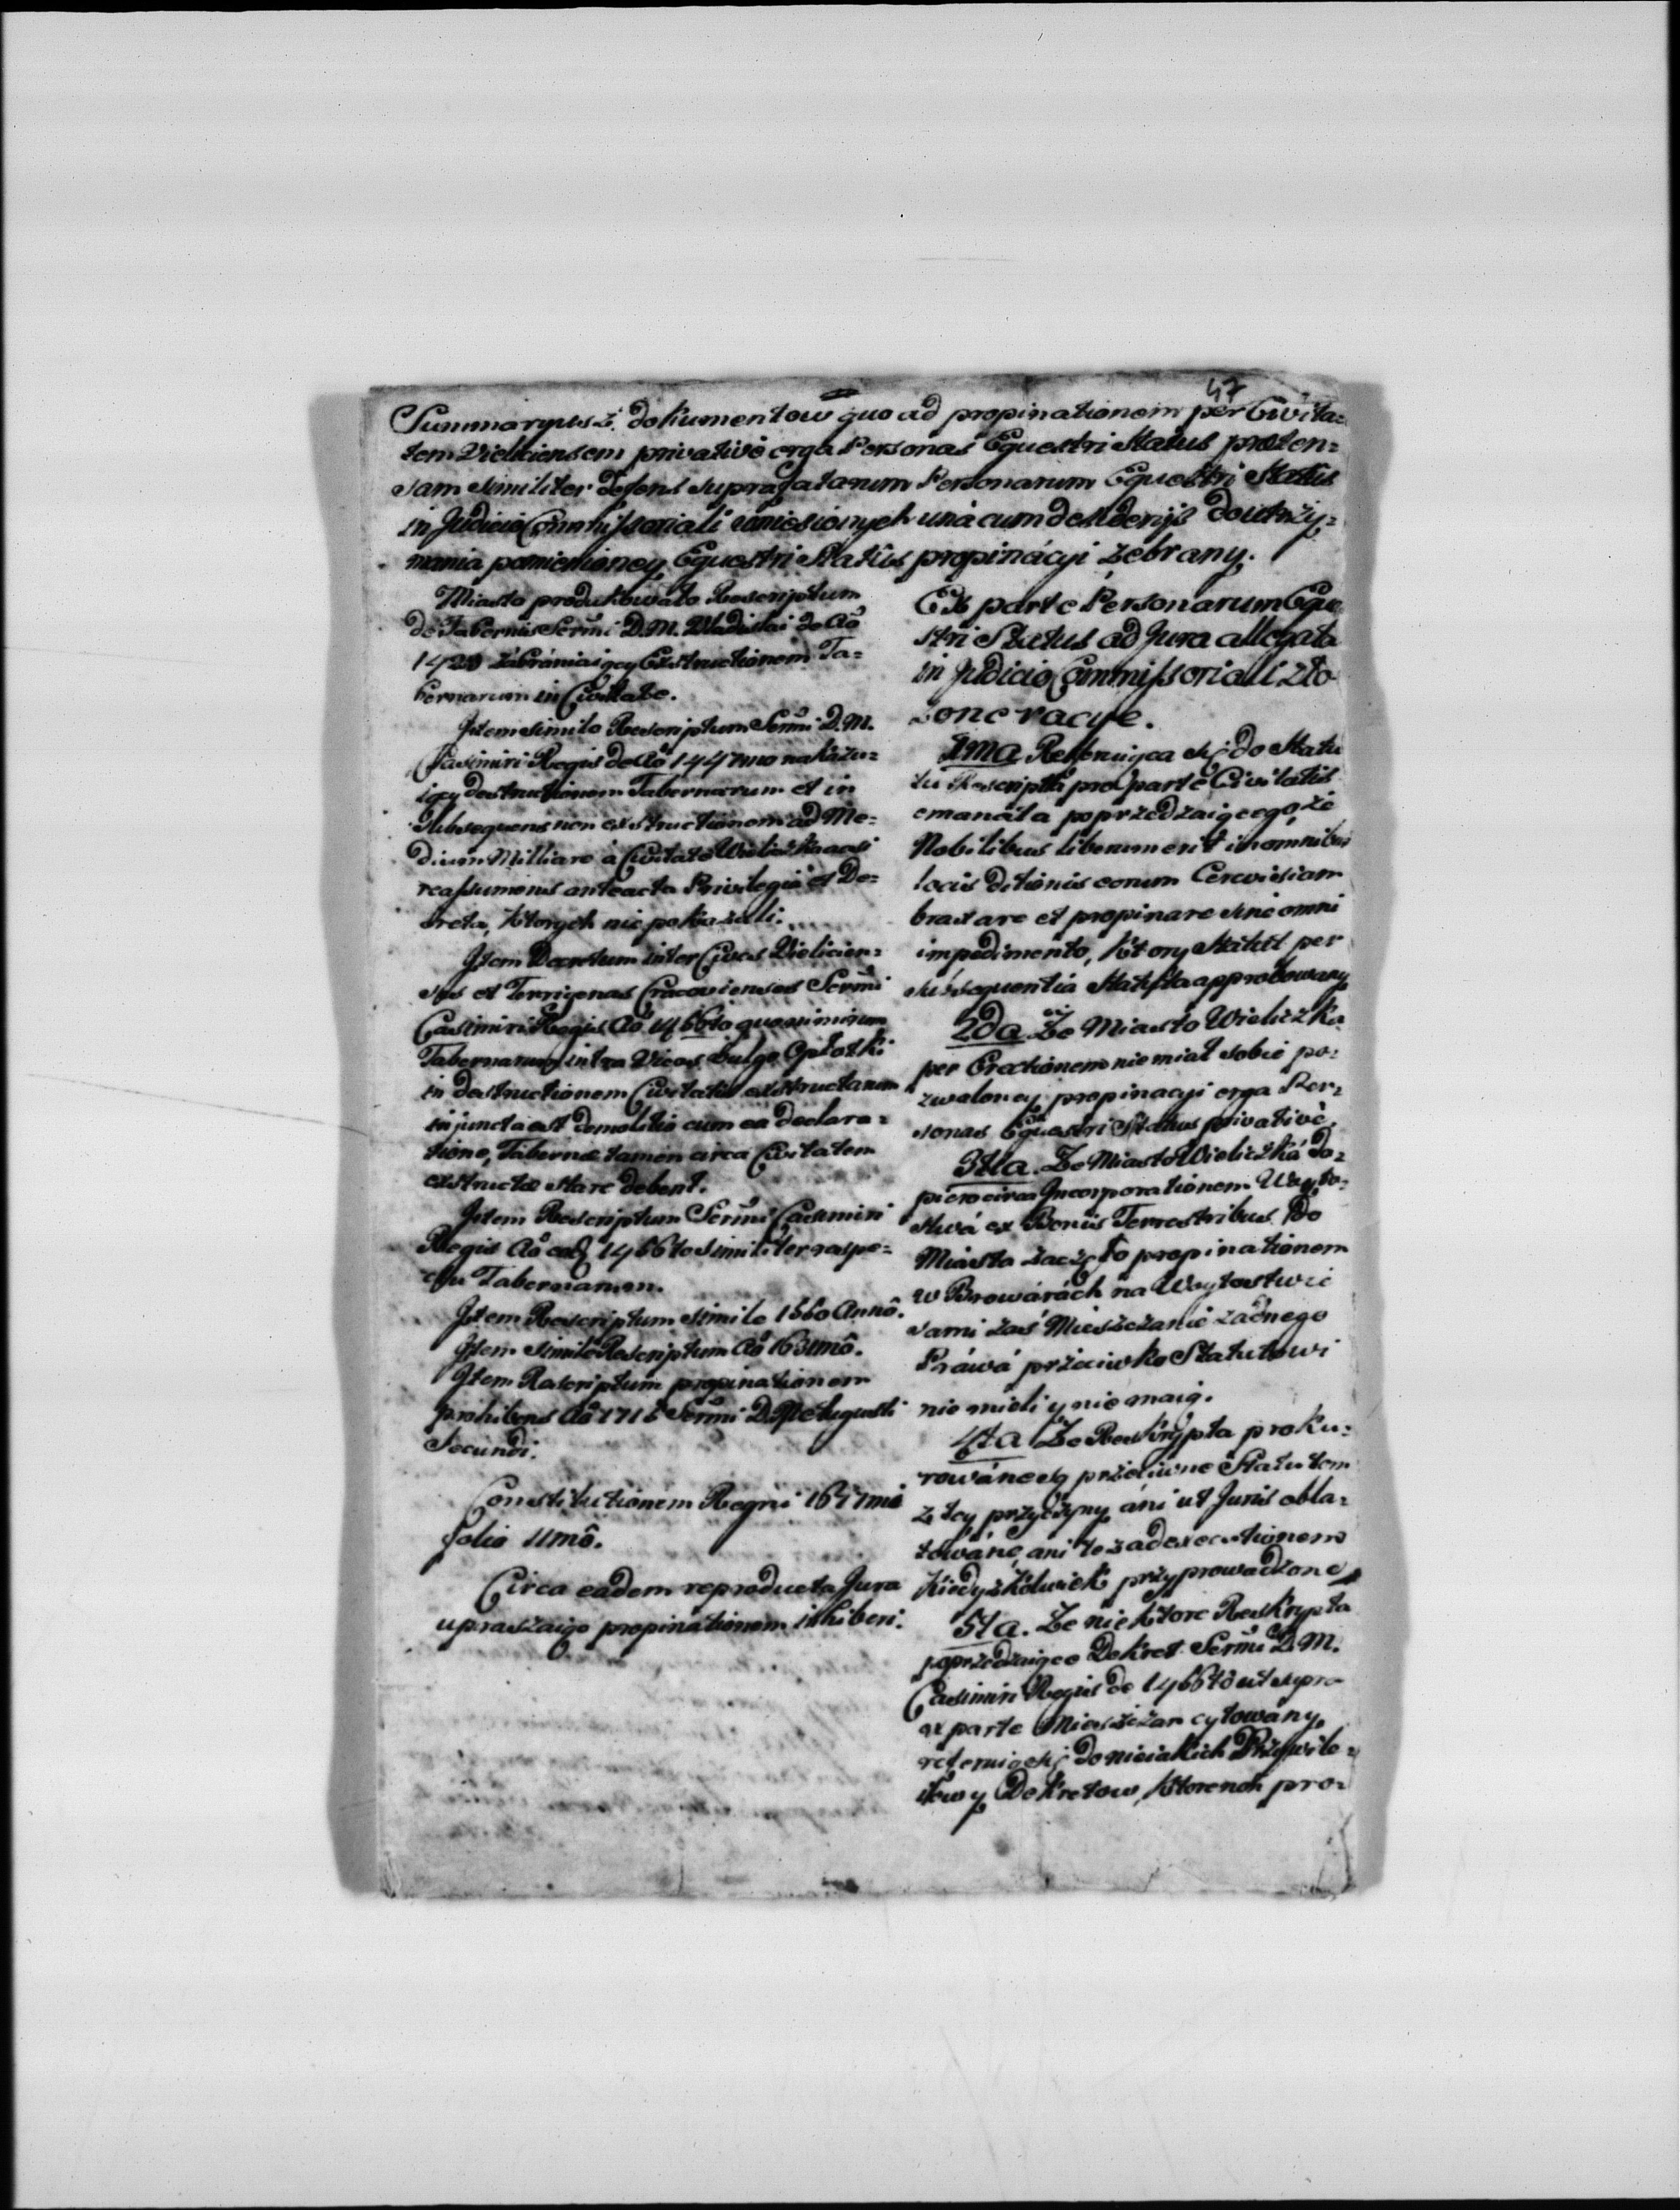 47
Summaryusz dokumentow quo ad propinationem per Civita=
tem Vieliciensem privativè erga Personas Equestri Status preten=
sam similiter defens suprafatarum Personarum Equestri Status
in Judicio Commissoriali uniesionych unà cum desideriis do utrzy=
mania pomienioney Equestri Statûs propinácyi zebrany.
Miasto produkowało Rescriptum
de Tabernis Sermi D. M. Vladislai de Ao
1420 zabraniaiący Exstructionem Ta=
bernarum in Civitate.
Item simile Rescriptum Sermi D. M.
Casimiri Regis de Ao 1447mo nakazu=
iący destructionem Tabernarum et in
subsequens non exstructionem ad Me=
dium Milliare à Civitate Wieliczka
reassumens anteacta Privilegia et De=
creta, ktorych nie pokazali.
Item Decretum inter Cives Vielicien=
ses et Terrigenas Cracovienses Sermi
Casimiri Regis Ao 1466to quo nimirum
Tabernarum intra Vicos vulgo Opłotki
in destructionem Civitatis exstructarum
injuncta est demolitio cum ea declara=
tione, Tabernæ tamen circa Civitatem
exstructæ stare debent.
Item Rescriptum Sermi Casimiri
Regis Ao eod 1466to similiter respe=
ctu Tabernarum.
Item Rescriptum simile 1560 Annô.
Item simile Rescriptum Ao 1631mô.
Item Rescriptum propinationem
prohibens Ao 1716 Sermi D. Augusti
Secundi.
Constitutionem Regni 1647mi
folio 11mô.
Circa eadem reproducta Jura
upraszaiąc propinationem inhiberi.
Ex parte Personarum Eque
stri Status ad Jura allegata
in Judicio Commissoriali zło
zone racye.
1ma Referuiąca się do Statu
tu Rescripta pro parte Civitatis
emanata poprzedzaiącego, że
Nobilibus liberum erit in omnibus
locis ditionis eorum Cerevisiam
braxare et propinare sine omni
impedimento, ktory Statut per
subsequentia Statuta approbowany
2da Że Miasto Wieliczka
per Erectionem nie miał sobie po=
zwoloney propinacyi erga Per=
sonas Equestri Status privativè.
3tia. Że Miasto Wieliczká do=
piero circa Incorporationem Woyto=
stwá ex Bonis Terrestribus Do
Miasta zaczęło propinationem
w Browárách na Woytostwie
sami zaś Mieszczanie żadnego
Práwá przeciwko Statutowi
nie mieli y nie maią.
4ta Że Reskrypta proku=
rowáne są przeciwne Statutom
z tey przyczyny áni ut Juris obla=
towáne, ani też ad executionem
kiedyżkolwiek przyprowadzone
5ta. Że niektore Reskrypta
poprzedzaiące Dekret Sermi D. M.
Casimiri Regis de 1466tô ut supra
ex parte Mieszczan cytowany,
referuią się do nieiakich Przywile=
iow y Dekretow, ktore non pro=